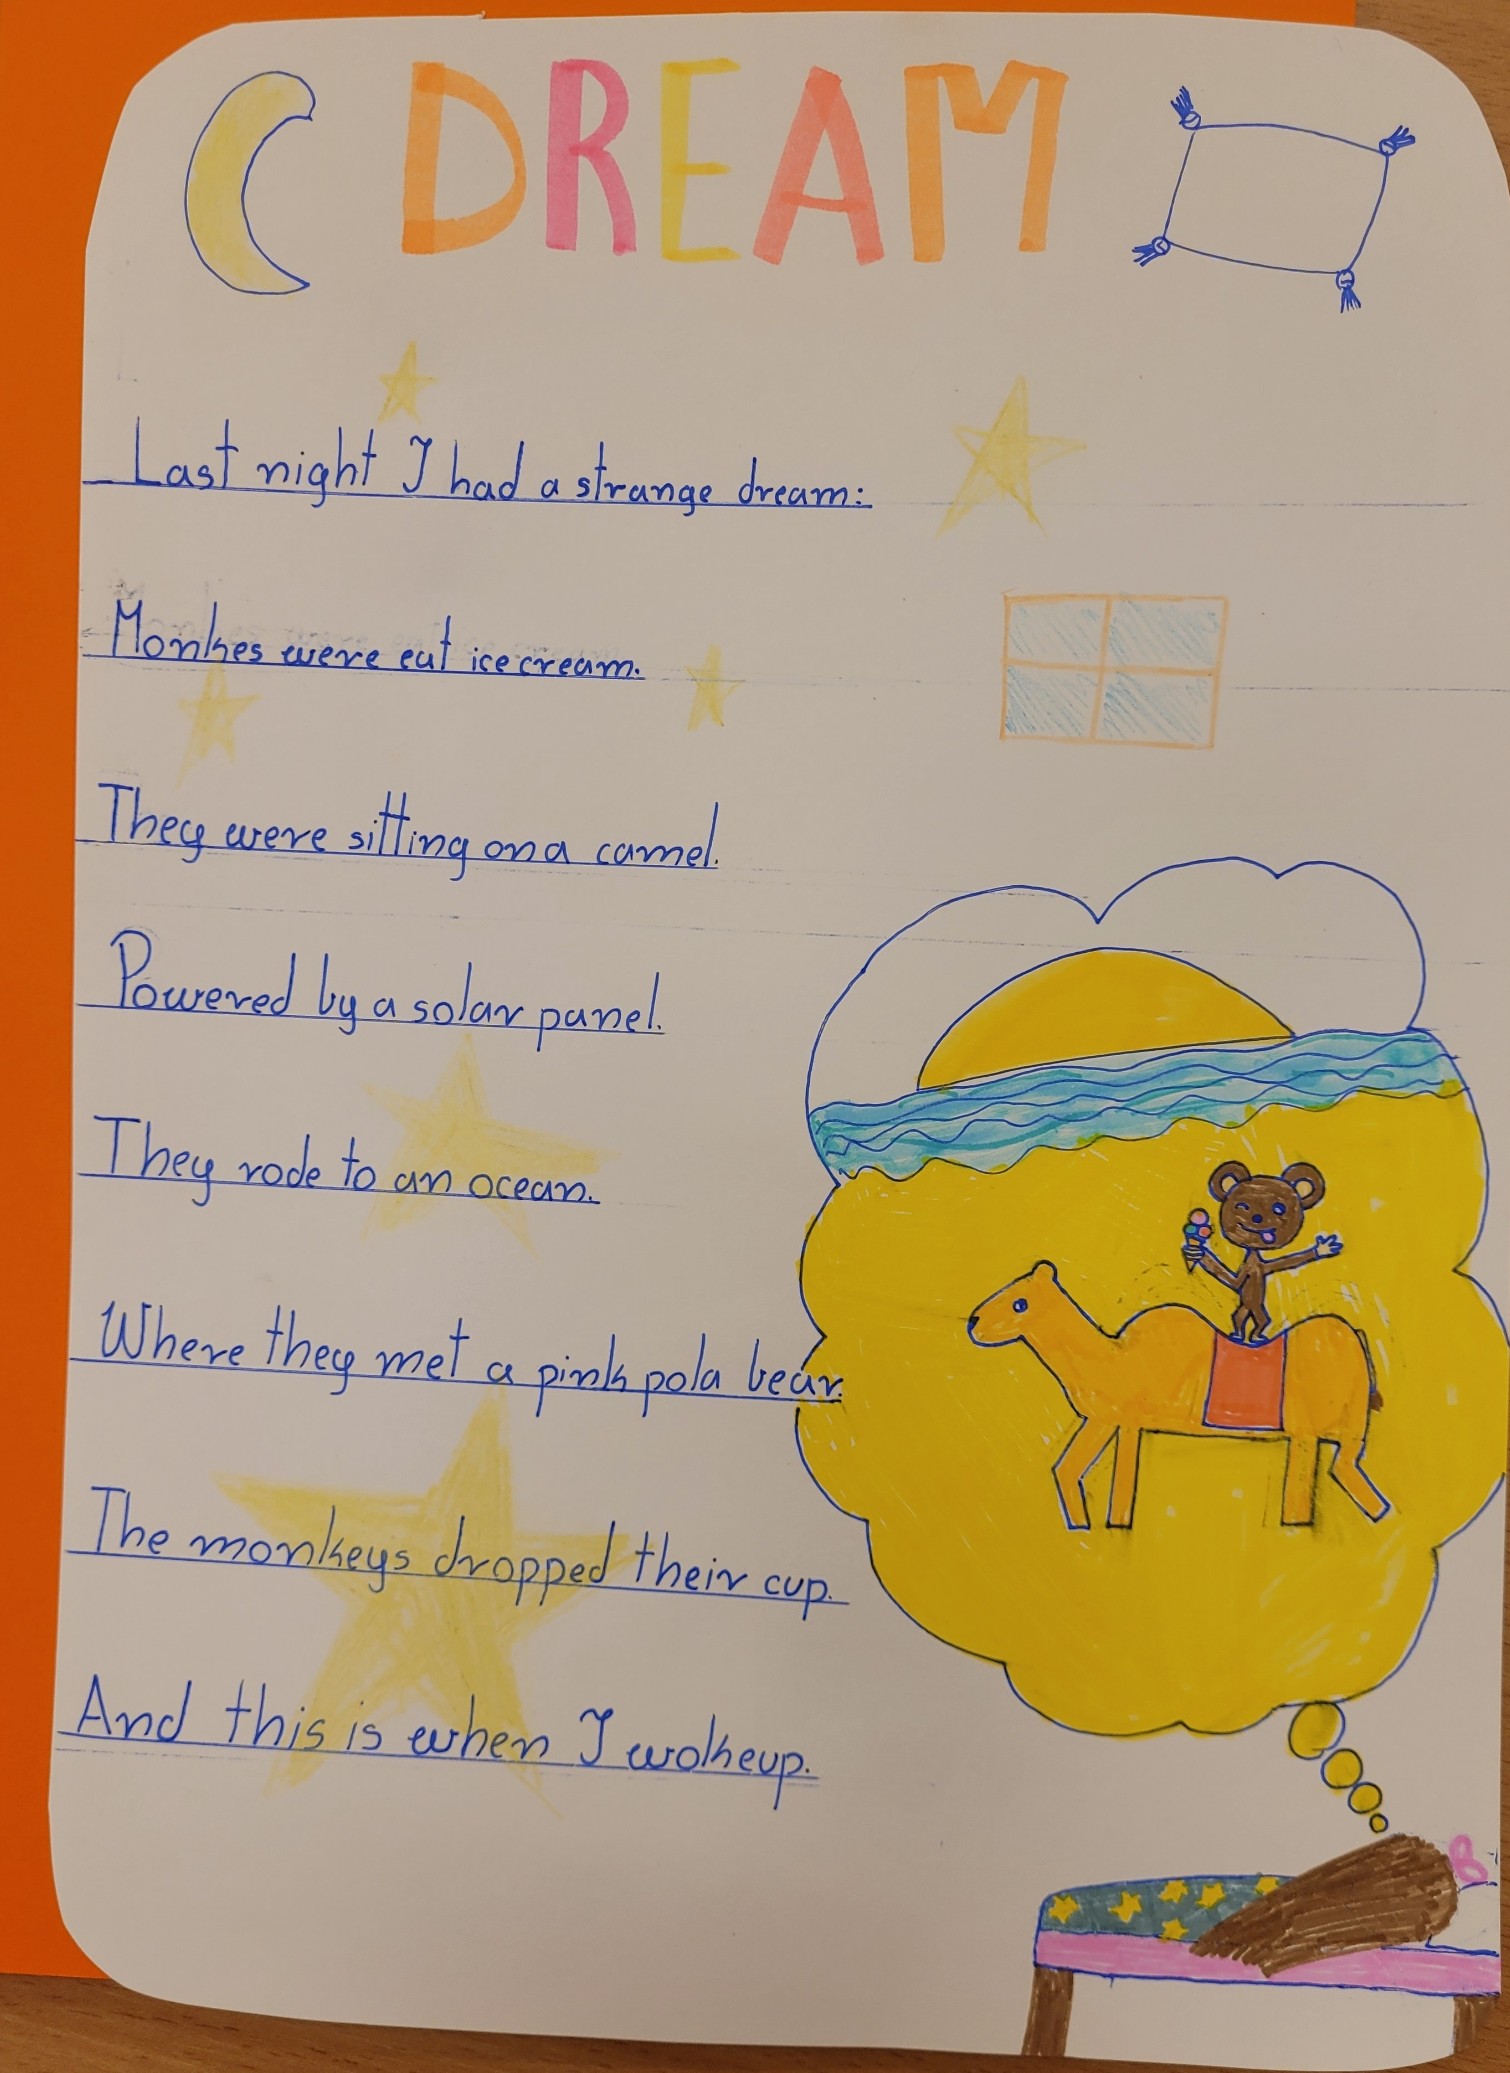 DREAM
Last night I had a strange dream:
Monkes were eat ice cream.
They were sitting on a camel.
Powered by a solar panel.
They rode to an ocean.
Where they met a pink pola bear.
The monkeys dropped their cup.
And this is when I woke up.